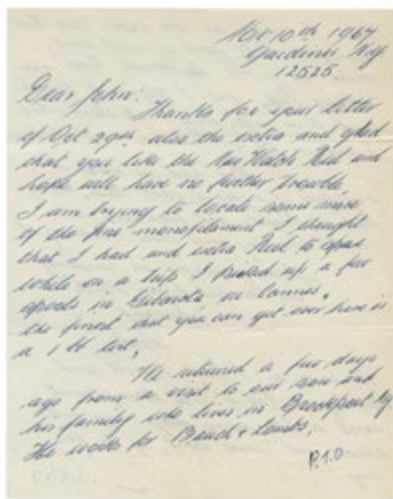 Nov 10th 1967
Gardiner N.Y.
12525.
Dear John:
Thanks for your letter
of Oct 29th also the extra and glad
that you like the Reel and
hope will have no further trouble.
I am trying to locate some more
of the fine monofilament I thought
that I had and extra Reel to spare
while on a trip I picked up a few
spools in or
the finest that you can get over here is
a 1 lb test.
We returned a few days
ago from a visit to our son and
his family who lives in Brockport Ny.
He works for Bauch + Lombs.
P.T.O